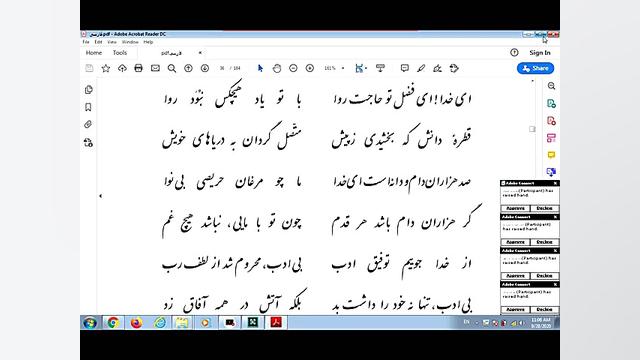 فارسی.pdf - Adobe Acrobat Reader DC
File Edit View Window Help
Home Tools فارسی.pdf × Sign In
36 / 184 161% Share
ای خدا! ای فضل تو حاجت روا با تو یاد هیچکس نبْوَد روا
قطرهٔ دانش که بخشیدی ز پیش متّصل گردان به دریاهای خویش
صد هزاران دام و دانا است ای خدا ما چو مرغان حریصی بی نوا
گر هزاران دام باشد هر قدم چون تو با مایی، نباشد هیچ غم
از خدا جوییم توفیق ادب بی ادب، محروم شد از لطف رب
بی ادب، تنها نه خود را داشت بد بلکه آتش در همه آفاق زد
Adobe Connect
(Participant) has raised hand.
Approve Decline
Adobe Connect
(Participant) has raised hand.
Approve Decline
Adobe Connect
(Participant) has raised hand.
Approve Decline
Adobe Connect
(Participant) has raised hand.
Approve Decline
EN 11:06 AM
9/28/2020